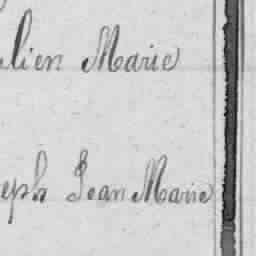 lien Marie
eph Jean Marie